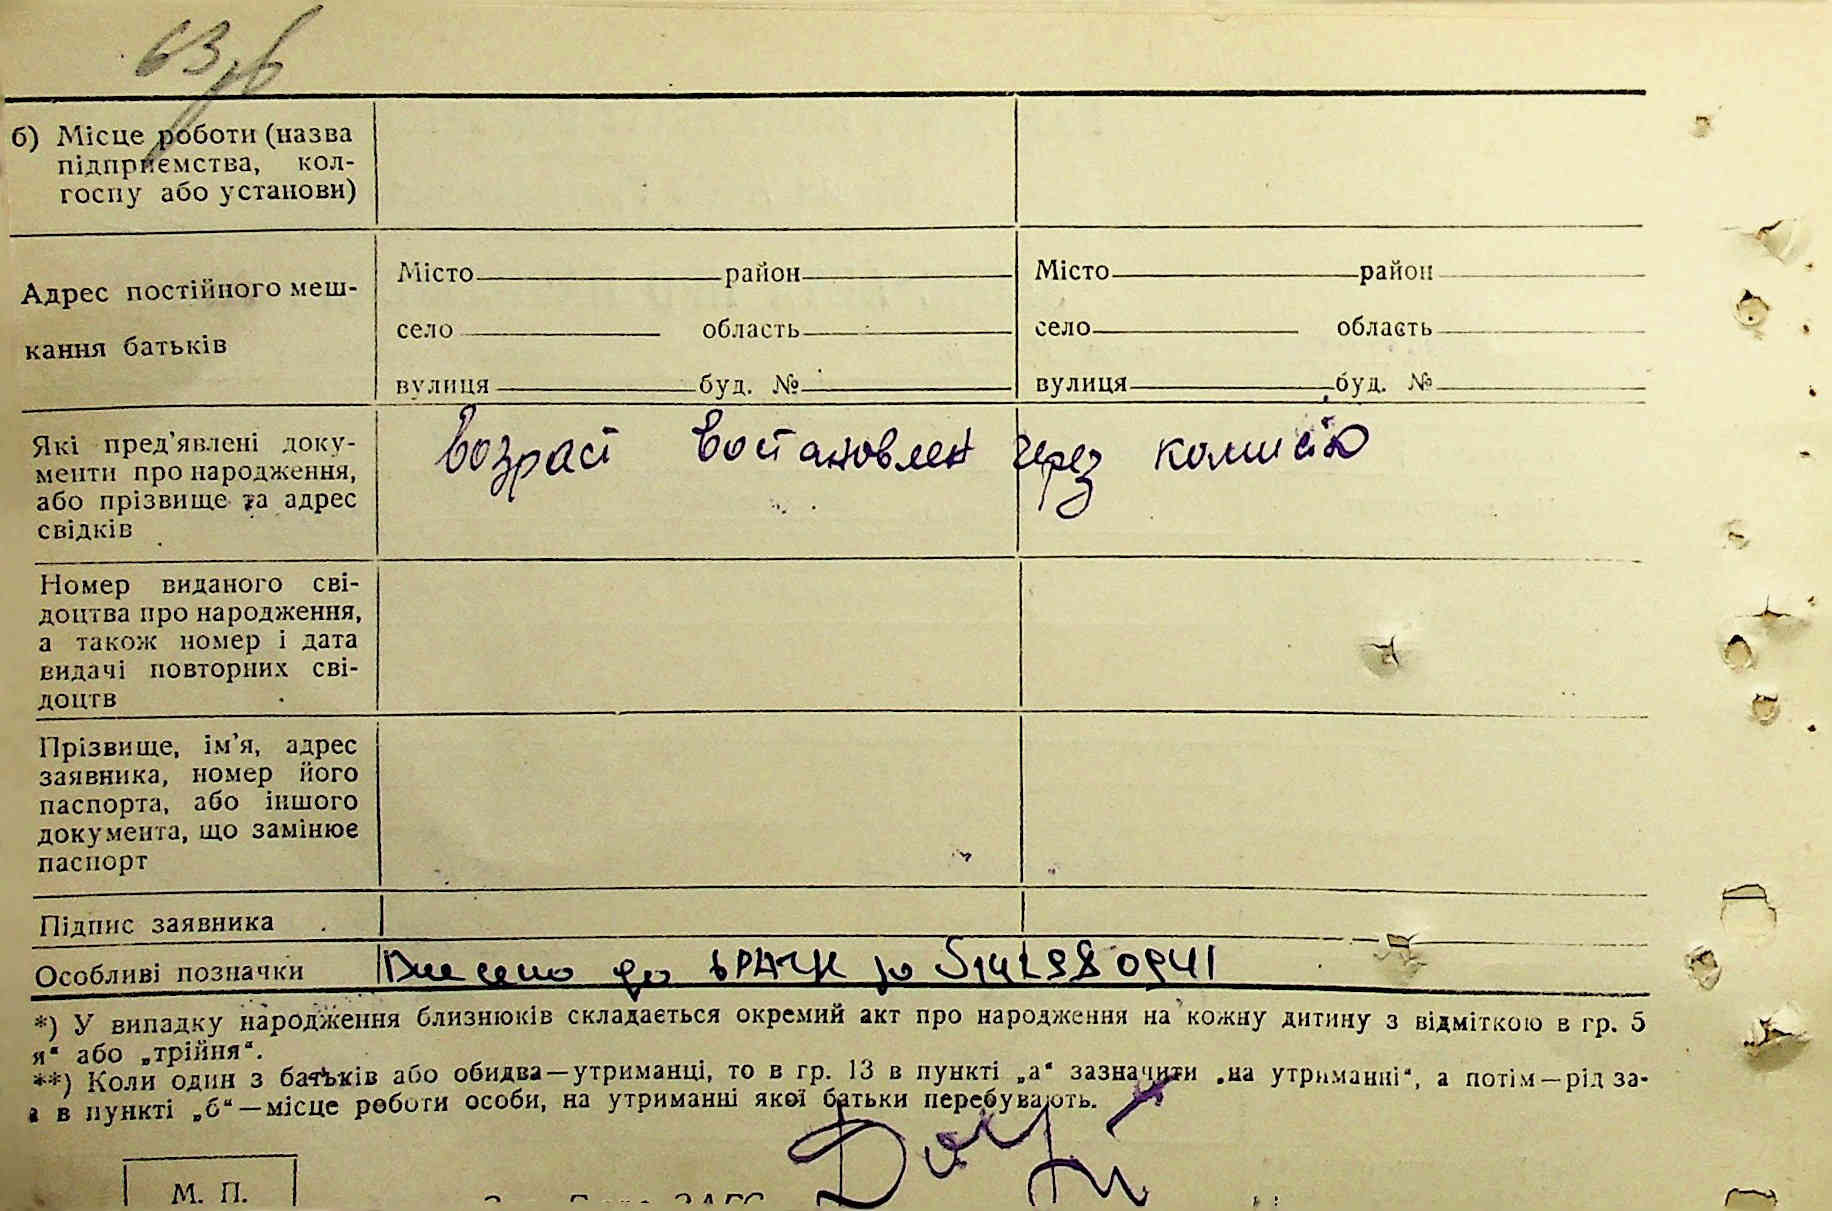 63 зв
б) Місце роботи (назва
підприємства, кол-
госпу або установи)
Адрес постійного меш-
кання батьків
Місто район Місто район
село область село область
вулиця буд. № вулиця буд. №
Які пред'явлені доку-
менти про народження,
або прізвище та адрес
свідків
возраст востановлен через комисію
Номер виданого сві-
доцтва про народження,
а також номер і дата
видачі повторних сві-
доцтв
Прізвище, ім'я, адрес
заявника, номер його
паспорта, або іншого
документа, що замінює
паспорт
Підпис заявника
Особливі позначки
Внесено до
*) У випадку народження близнюків складається окремий акт про народження на кожну дитину з відміткою в гр. 5
я“ або „трійня“.
**) Коли один з батьків або обидва—утриманці, то в гр. 13 в пункті „а“ зазначити „на утриманні“, а потім—рід за-
а в пункті „б“—місце роботи особи, на утриманні якої батьки перебувають.
М. П.